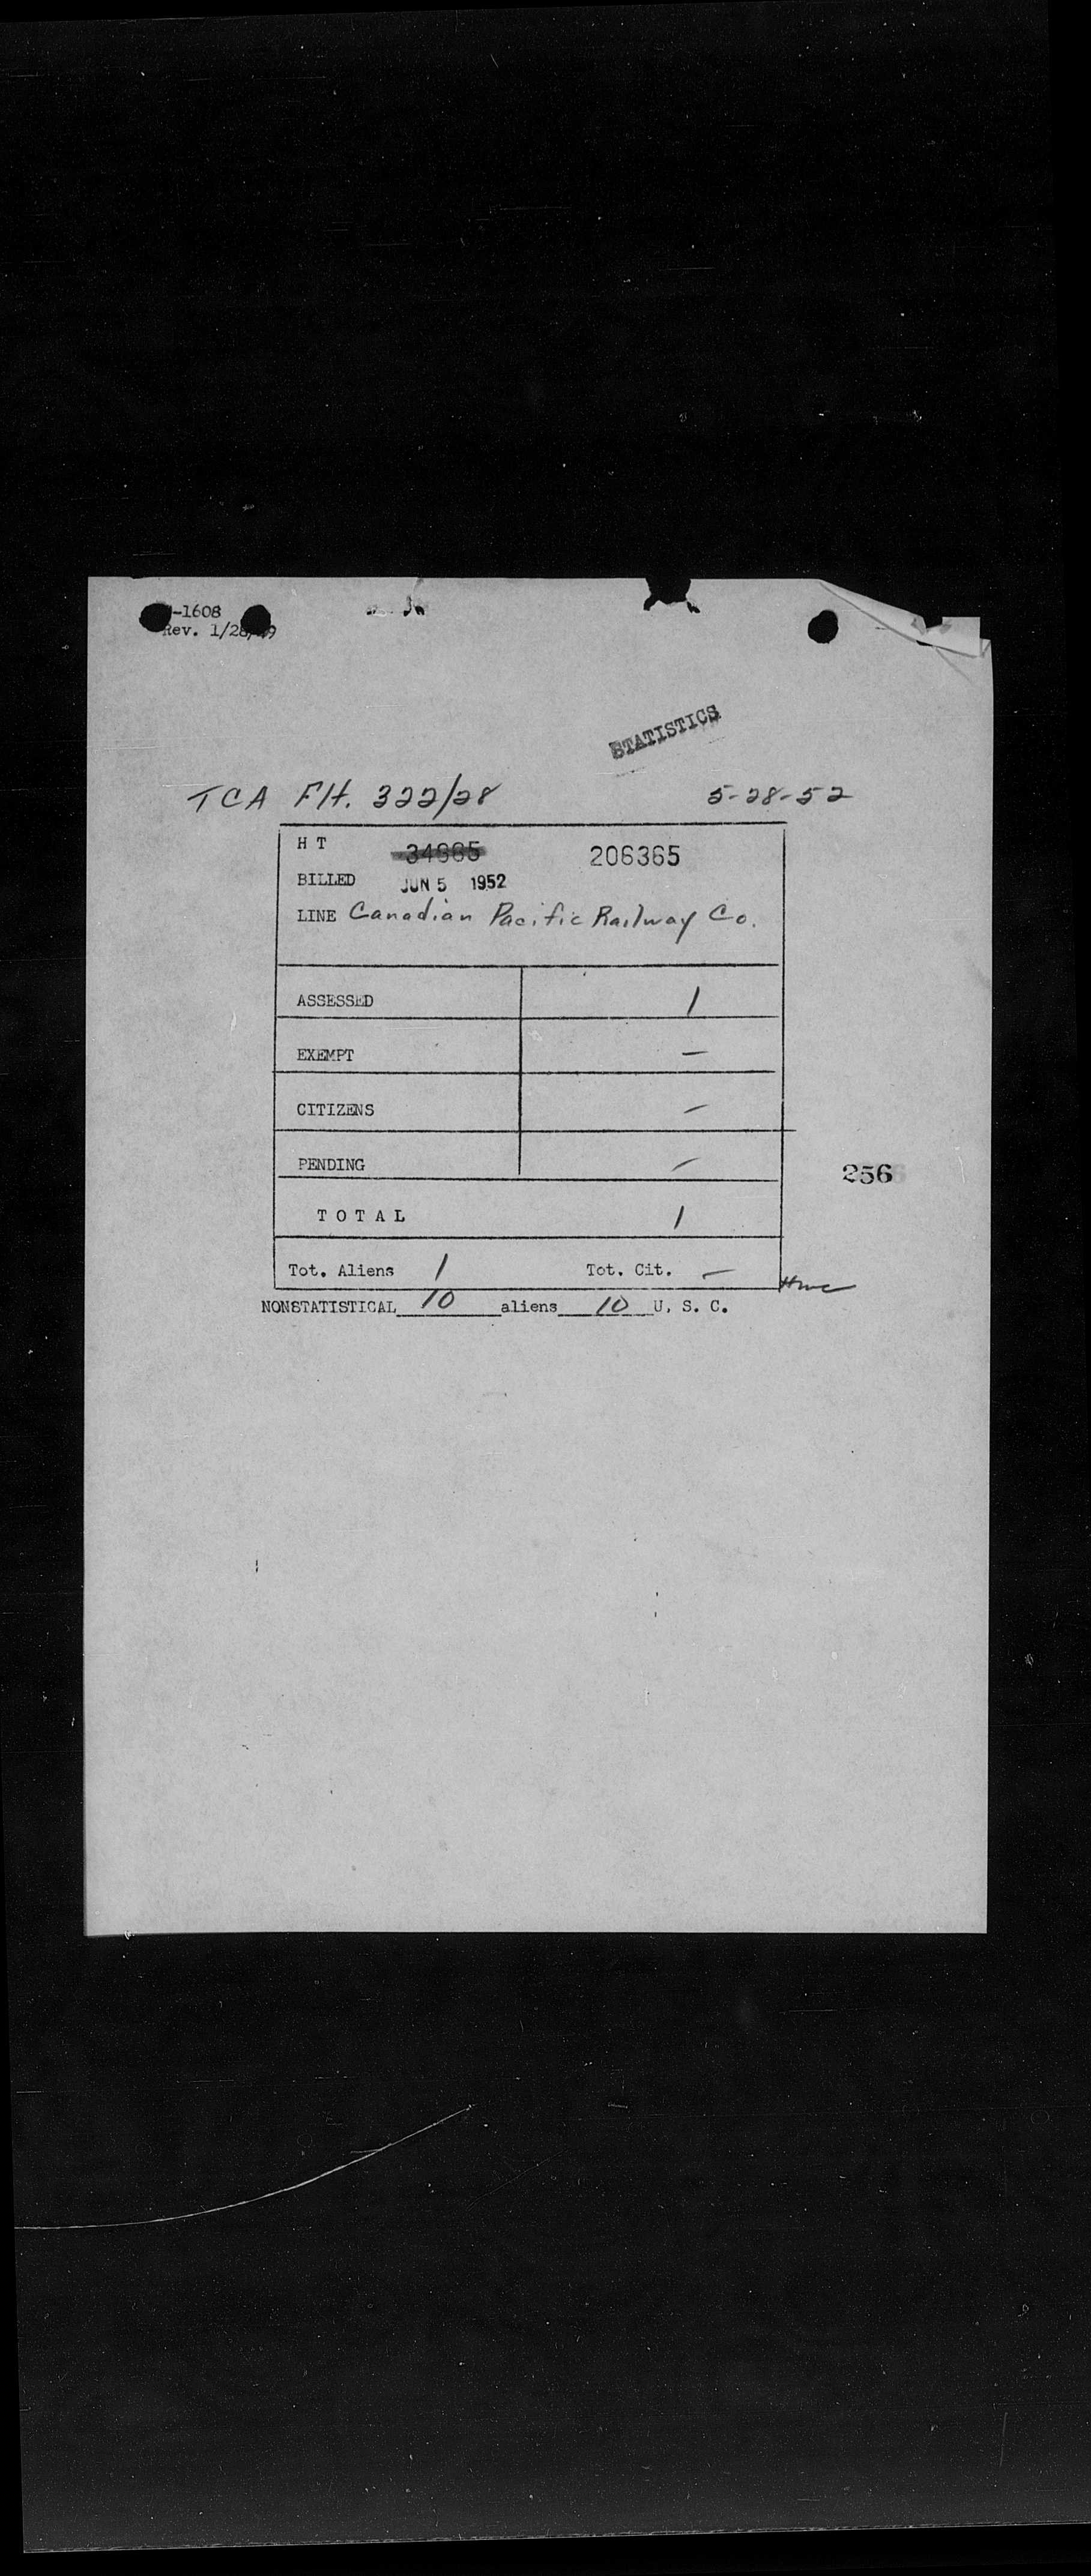 -1608
Rev. 1/28/49
STATISTICS
TCA Flt. 322/28 5-28-52
H T 206365
BILLED JUN 5 1952
LINE Canadian Pacific Railway Co.
ASSESSED 1
EXEMPT —
CITIZENS —
PENDING —
256
T O T A L 1
Tot. Aliens 1 Tot. Cit. —
NONSTATISTICAL 10 aliens 10 U. S. C.